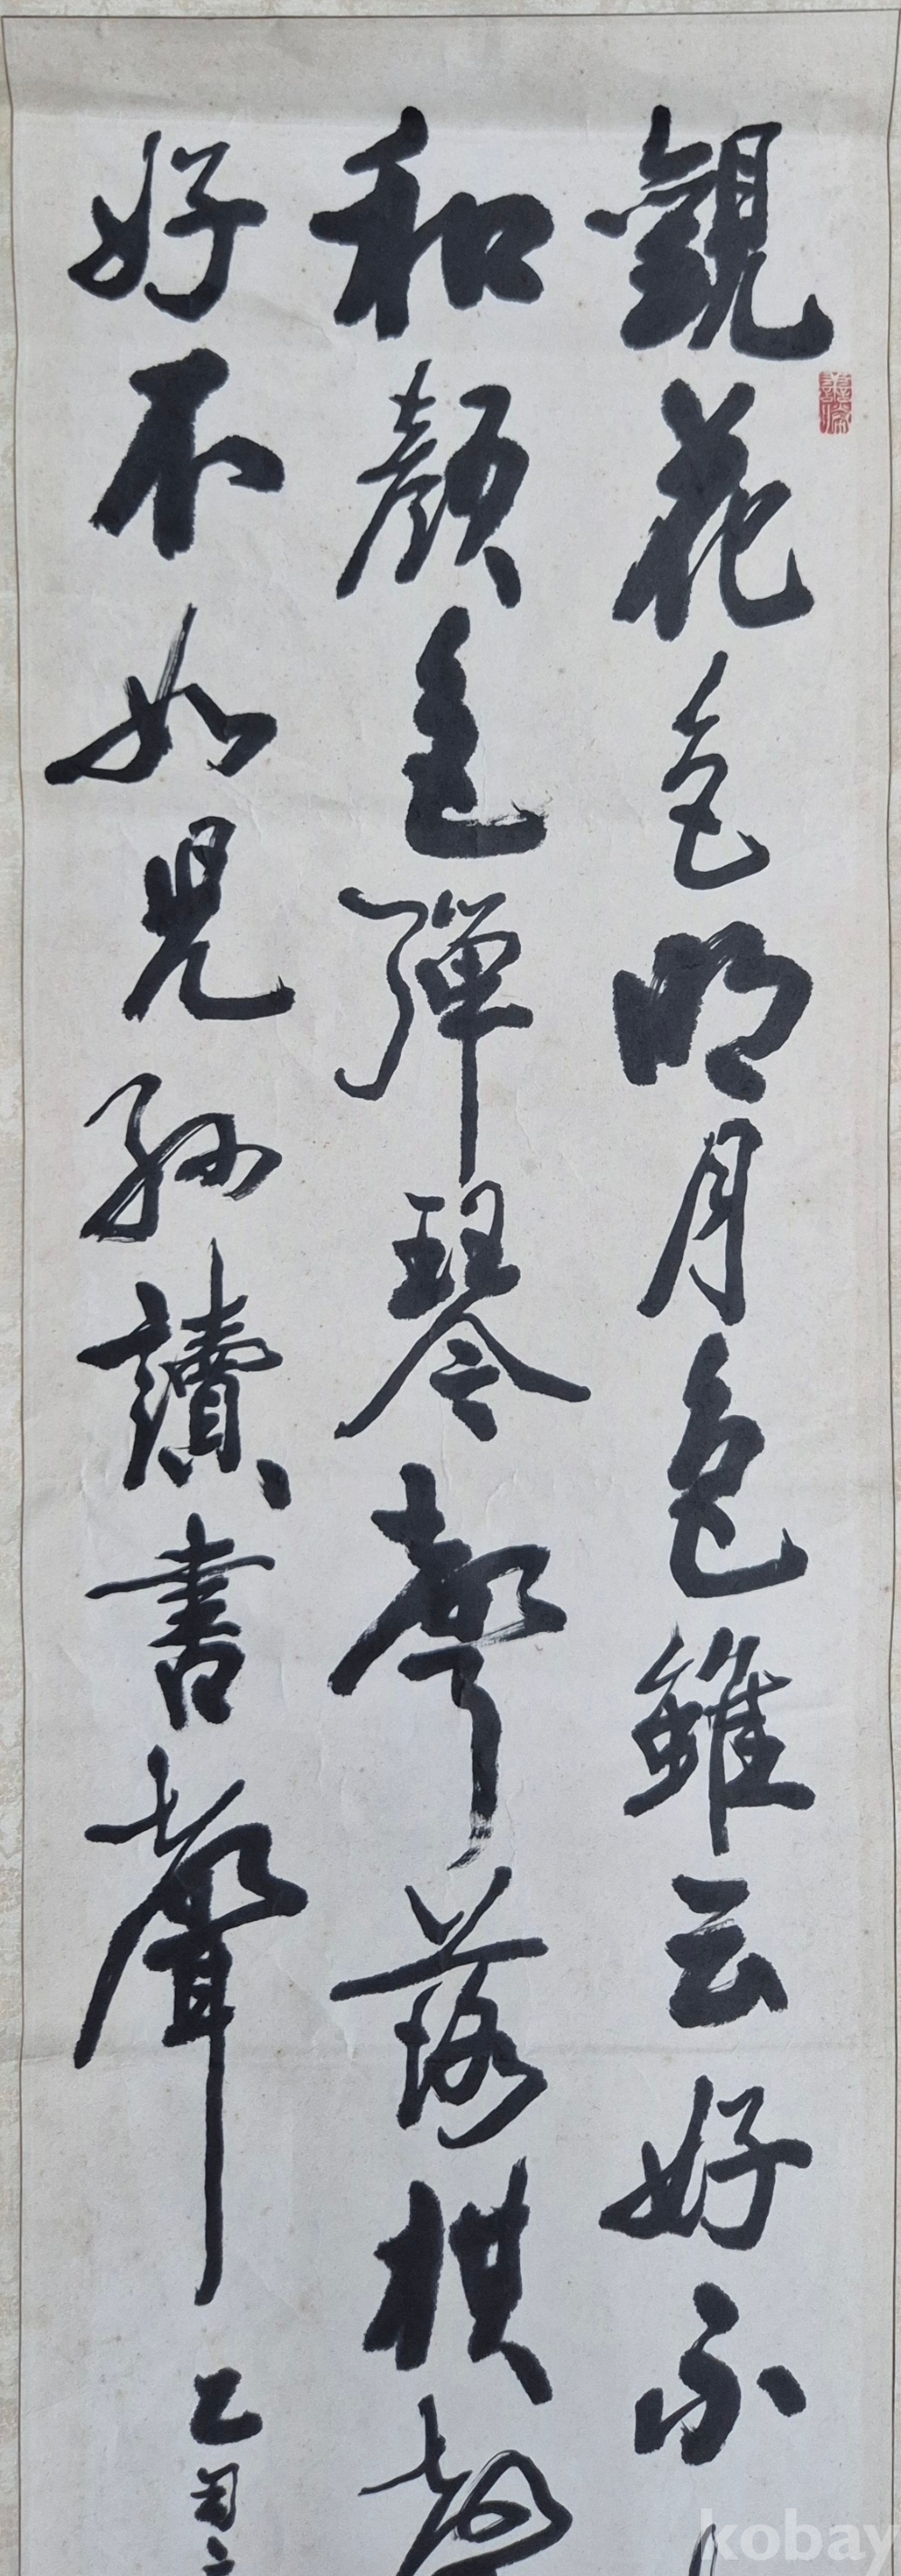 觀花色明月色雖云好不
和顏色彈琴聲落棋聲
好不如兒孫讀書聲
乙
kobay